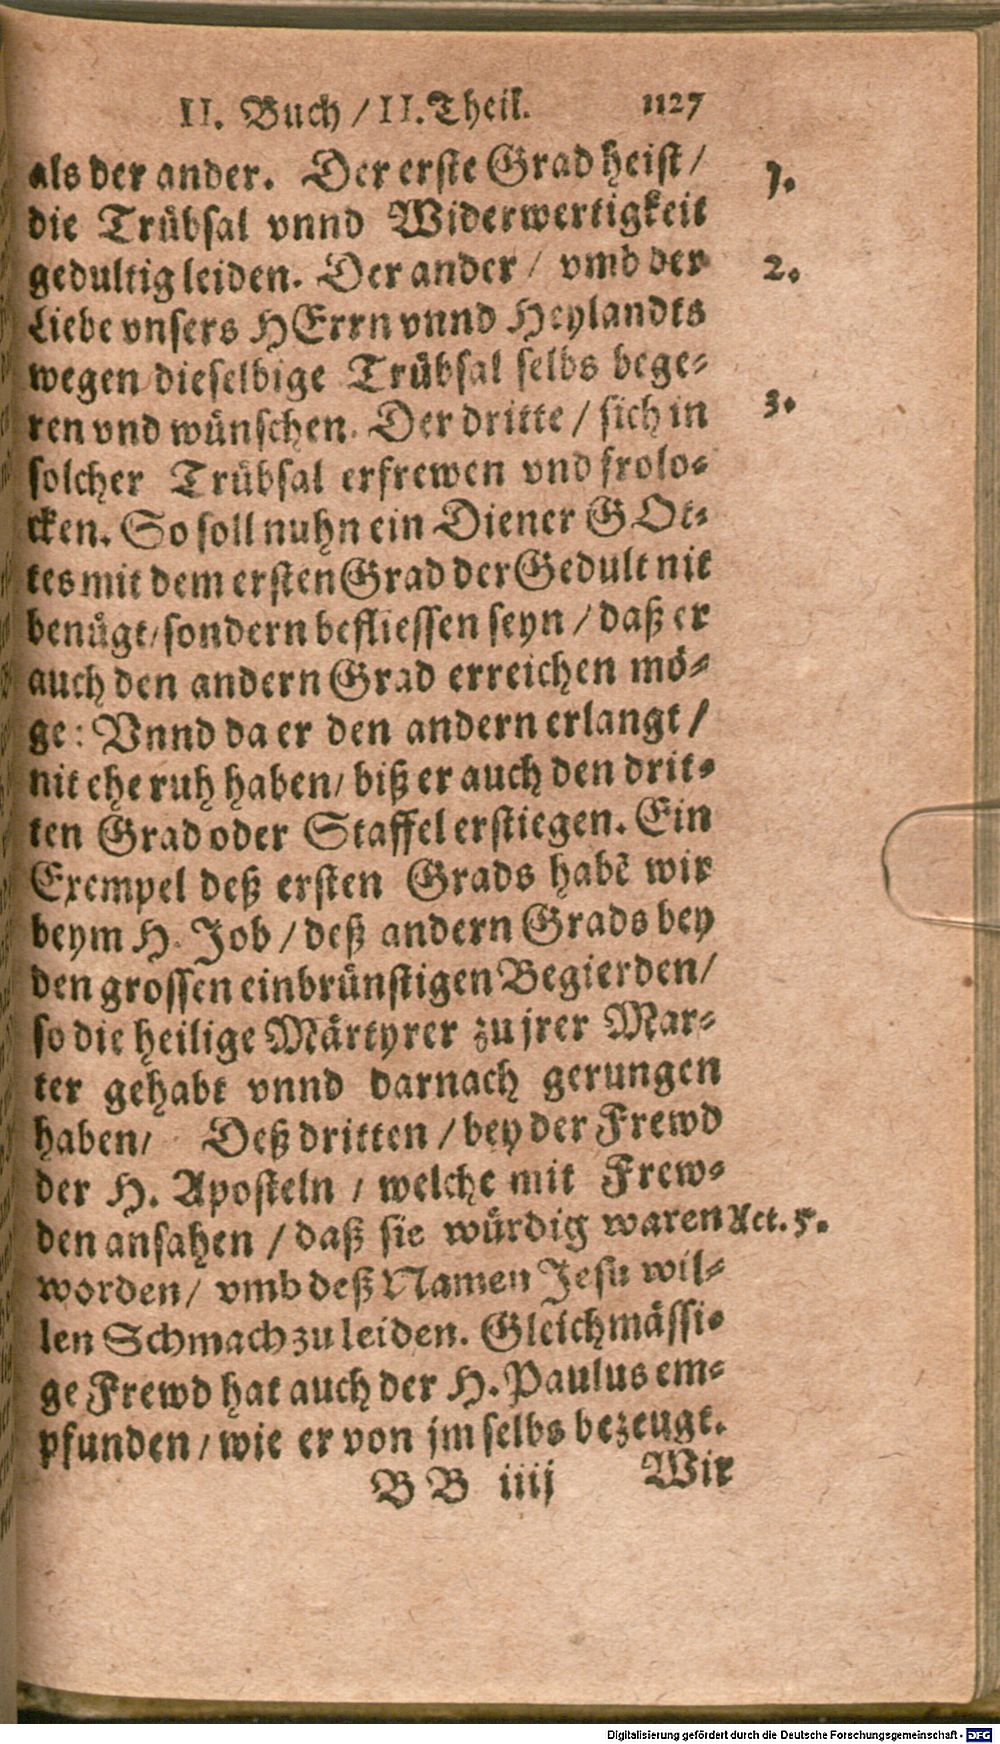 II. Buch / II. Theil. 1127
als der ander. Der erste Grad heist / 1.
die Trübsal vnnd Widerwertigkeit
gedultig leiden. Der ander / vmb der 2.
Liebe vnsers HErrn vnnd Heylandts
wegen dieselbige Trübsal selbs bege-
ren vnd wünschen. Der dritte / sich in 3.
solcher Trübsal erfrewen vnd frolo-
cken. So soll nuhn ein Diener GOt-
tes mit dem ersten Grad der Gedult nit
benügt / sondern befliessen seyn / daß er
auch den andern Grad erreichen mö-
ge: Vnnd da er den andern erlangt /
nit ehe ruh haben / biß er auch den drit-
ten Grad oder Staffel erstiegen. Ein
Exempel deß ersten Grads habẽ wir
beym H. Job / deß andern Grads bey
den grossen einbrünstigen Begierden /
so die heilige Märtyrer zu jrer Mar-
ter gehabt vnnd darnach gerungen
haben / Deß dritten / bey der Frewd
der H. Aposteln / welche mit Frew-
den ansahen / daß sie würdig waren Act. 5.
worden / vmb deß Namen Jesu wil-
len Schmach zu leiden. Gleichmässi-
ge Frewd hat auch der H. Paulus em-
pfunden / wie er von jm selbs bezeugt.
BB iiij Wir
Digitalisierung gefördert durch die Deutsche Forschungsgemeinschaft - DFG